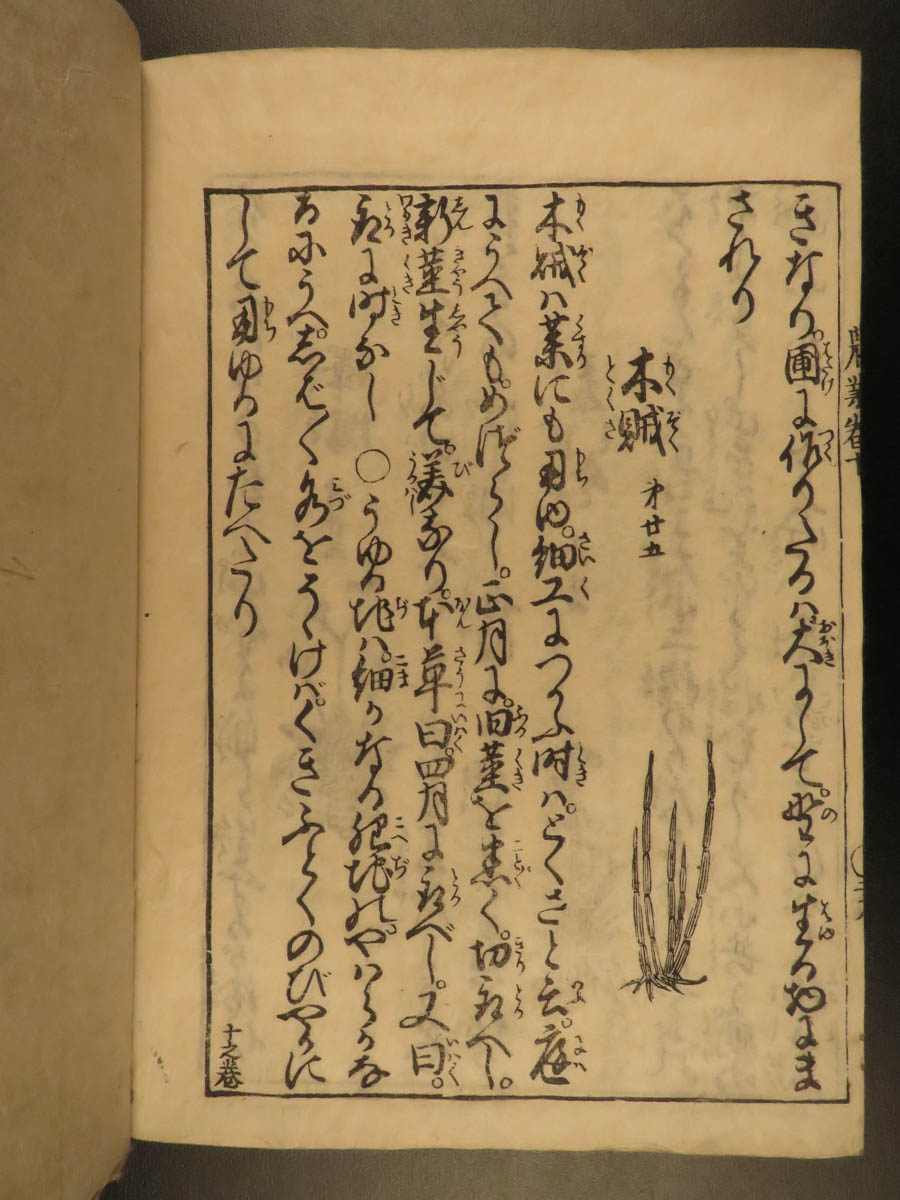 きなり。圃に作りたるハ大にして。野に生る物にま
されり
木賊 才廿五
もくぞく
とくさ
木賊ハ薬にも用ゆ。細工につかふ時ハ。とくさと云。庭
にうへても。めづらし。正月に。旧茎を悉く。切取べし。
新茎生じて。美なり。本草曰。四月に取べし。又曰。
取に時なし ○うゆる地ハ。細かなる肥地の。やハらかな
るにうへ。しば〳〵水をそゝげバ。くきふとくのびやかに
して用ゆるにたへたり
農業巻十
十之巻